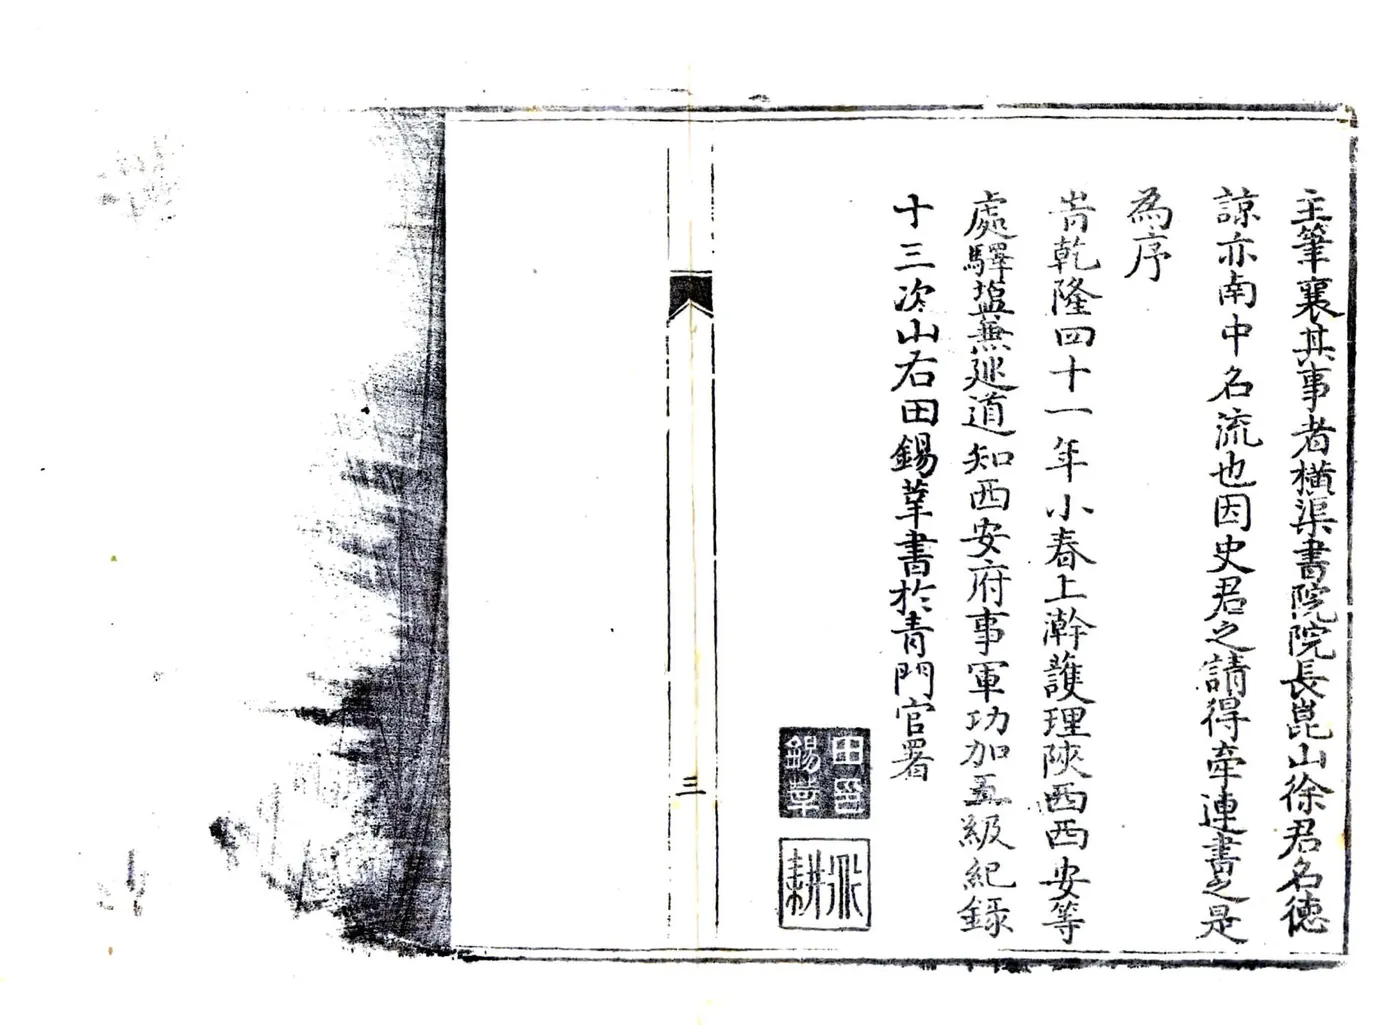 主筆襄其事者橫渠書院院長崑山徐君名德
諒亦南中名流也因史君之請得牽連書之是
為序
旹乾隆四十一年小春上澣護理陝西西安等
處驛塩兼巡道知西安府事軍功加五級紀錄
十三次山右田錫莘書於青門官署
田印
錫莘
耕
三